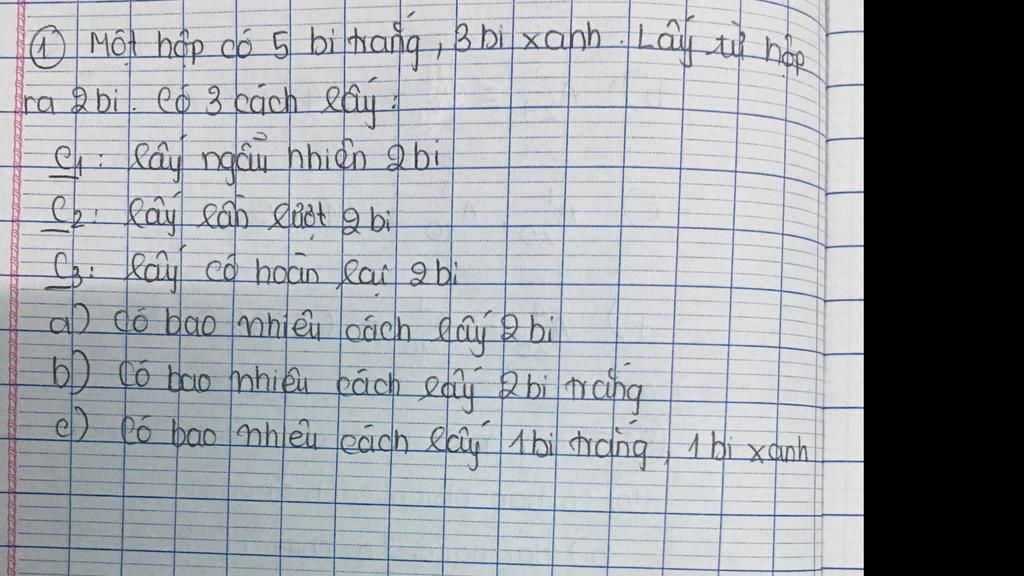 ① Một hộp có 5 bi trắng, 3 bi xanh. Lấy từ hộp
ra 2 bi. Có 3 cách lấy:
C1: lấy ngẫu nhiên 2 bi
C2: lấy lần lượt 2 bi
C3: lấy có hoàn lại 2 bi
a) có bao nhiêu cách lấy 2 bi
b) Có bao nhiêu cách lấy 2 bi trắng
c) Có bao nhiêu cách lấy 1 bi trắng, 1 bi xanh